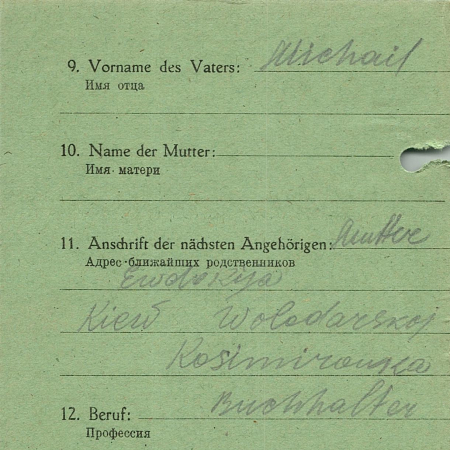 9. Vorname des Vaters: Michail
Имя отца
10. Name der Mutter:
Имя матери
11. Anschrift der nächsten Angehörigen: Mutter
Адрес ближайших родственников
Ewdokija
Kiew Wolodarskoj
Kosimirowska
12. Beruf: Buchhalter
Профессия